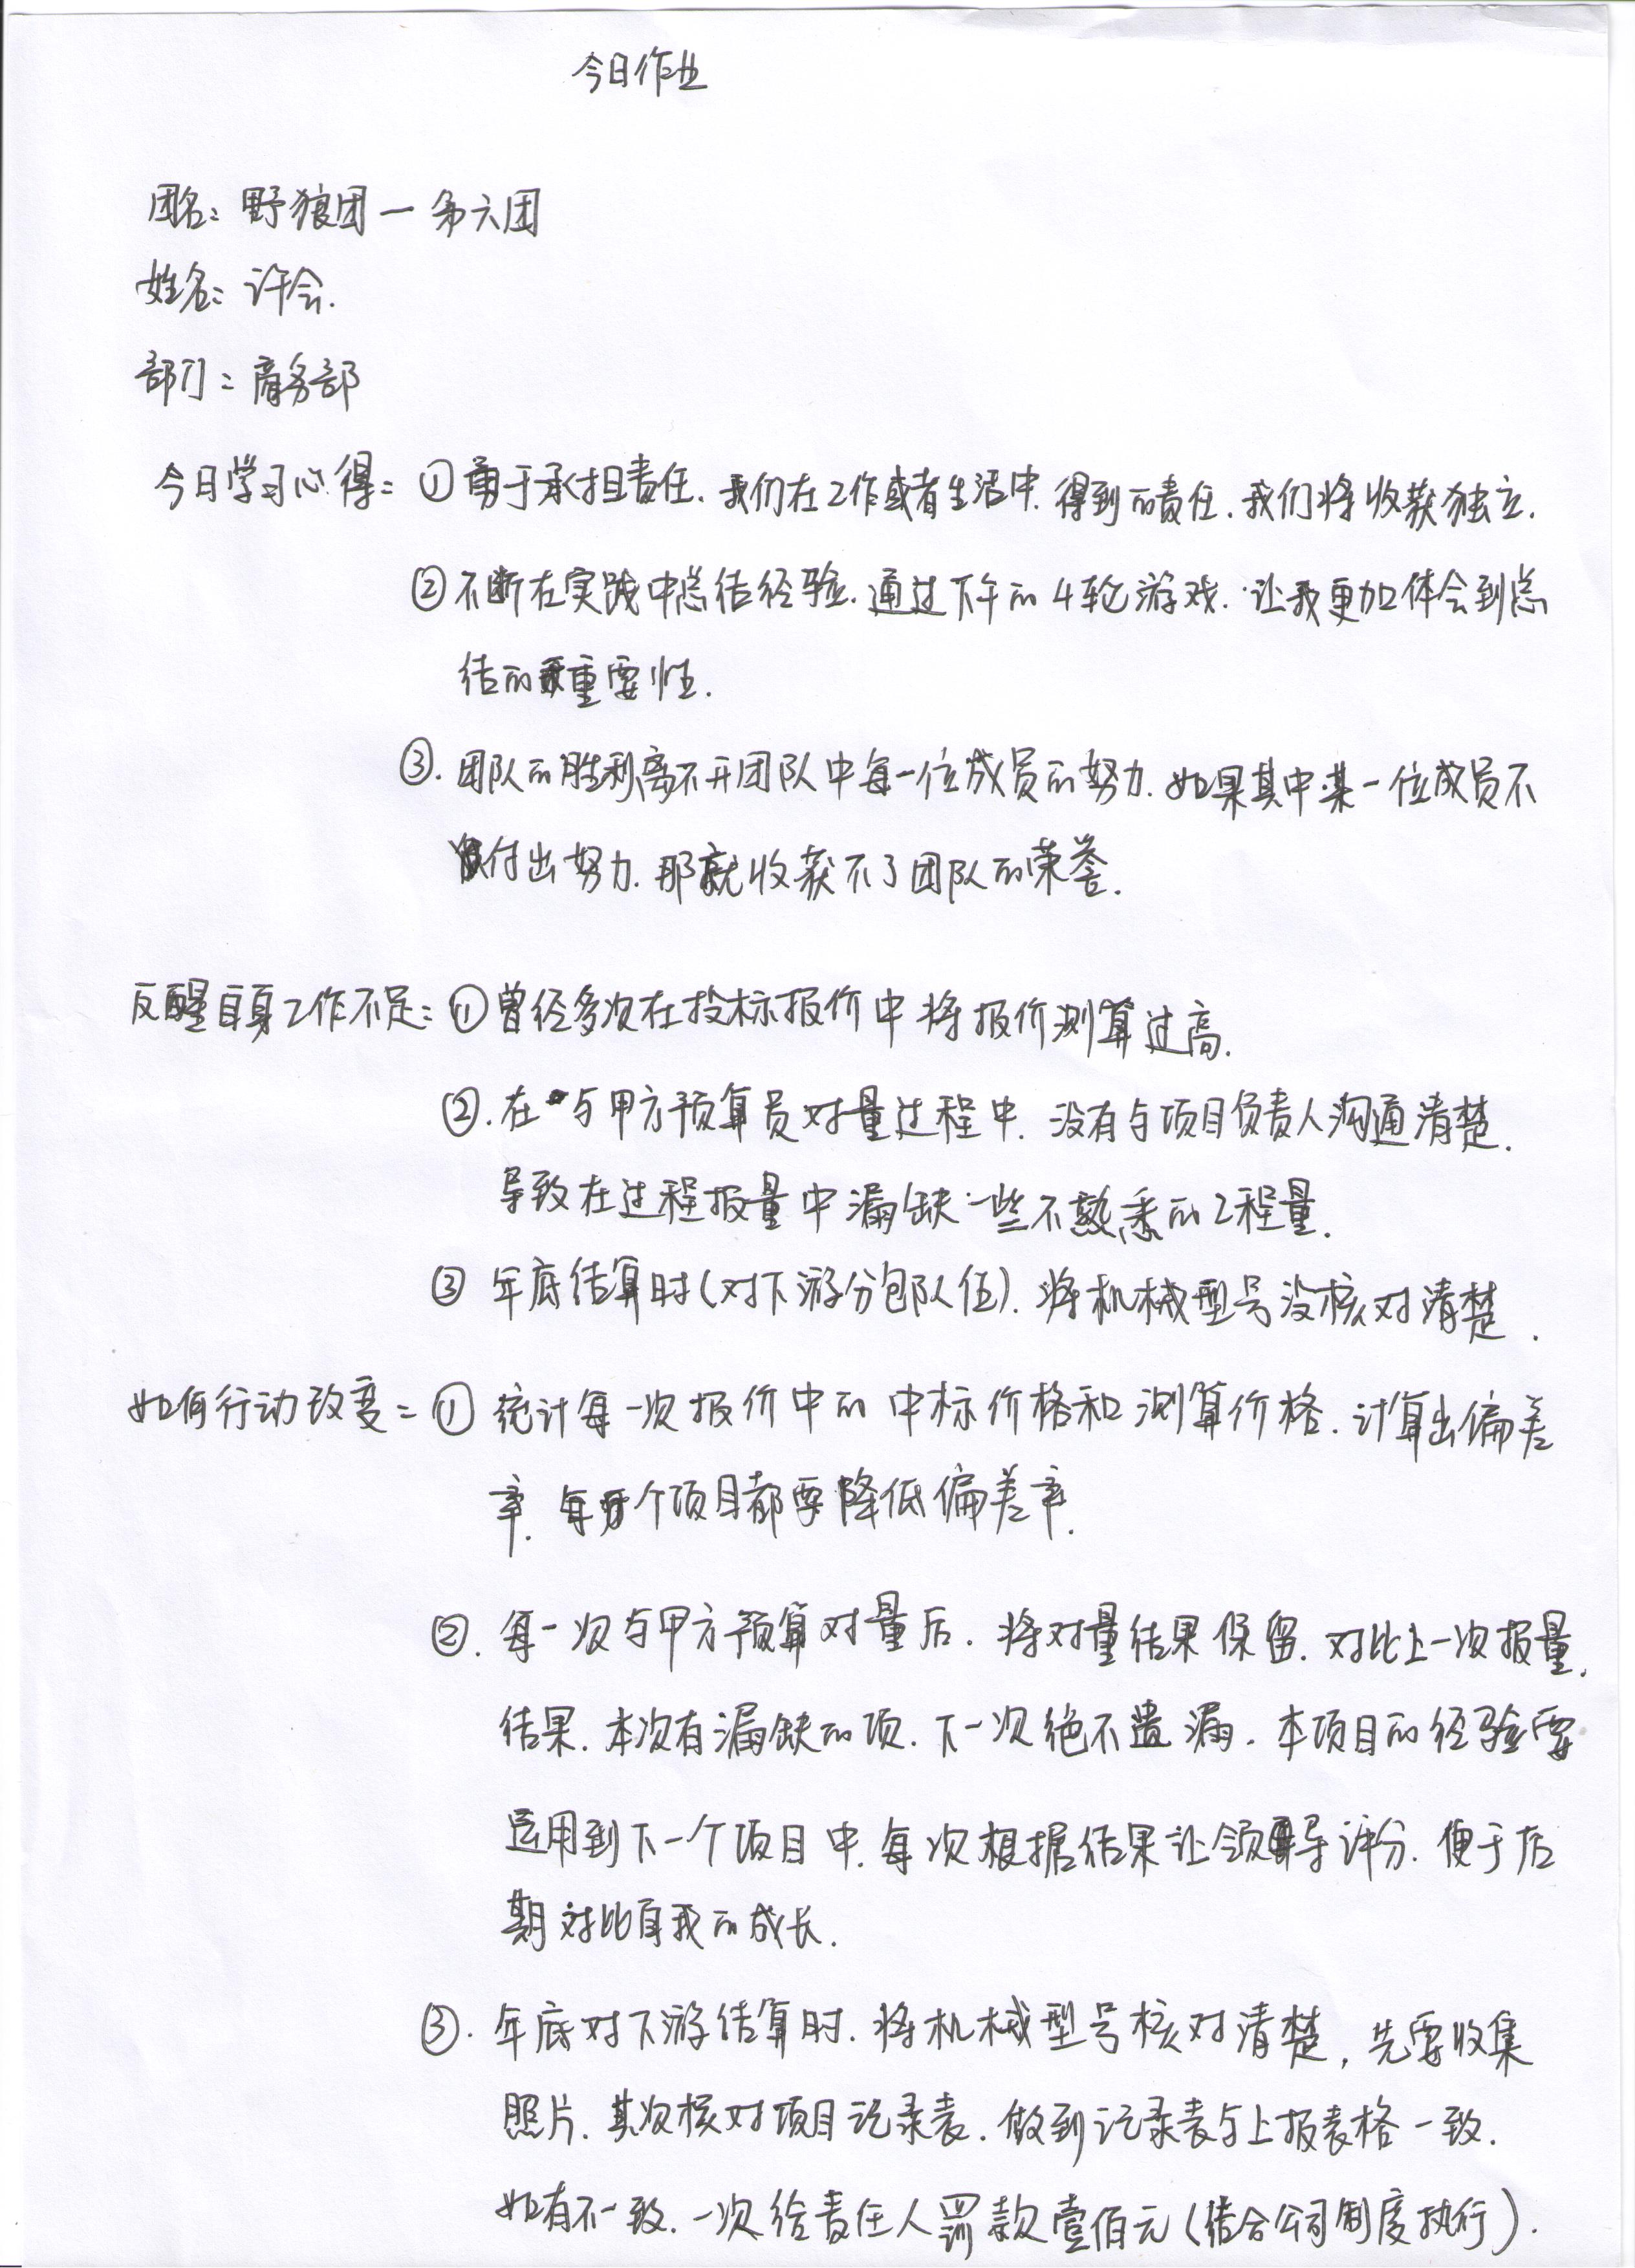 今日作业
团名：野狼团一第六团
姓名：许会.
部门：商务部
今日学习心得：①勇于承担责任.我们在工作或者生活中.得到的责任.我们将收获独立.
②不断在实践中总结经验.通过下午的4轮游戏.让我更加体会到总
结的重要性.
③.团队的胜利离不开团队中每一位成员的努力.如果其中某一位成员不
付出努力.那就收获不了团队的荣誉.
反醒自身工作不足：①曾经多次在投标报价中将报价测算过高.
②.在与甲方预算员对量过程中.没有与项目负责人沟通清楚.
导致在过程报量中漏缺一些不熟悉的工程量.
③年底结算时(对下游分包队伍).将机械型号没核对清楚.
如何行动改变：①统计每一次报价中的中标价格和测算价格.计算出偏差
率.每个项目都要降低偏差率.
②.每一次与甲方预算对量后.将对量结果保留.对比上一次报量.
结果.本次有漏缺的项.下一次绝不遗漏.本项目的经验要
运用到下一个项目中.每次根据结果让领导评分.便于后
期对比自我的成长.
③.年底对下游结算时.将机械型号核对清楚,先要收集
照片.其次核对项目记录表.做到记录表与上报表格一致.
如有不一致.一次给责任人罚款壹佰元(结合公司制度执行).